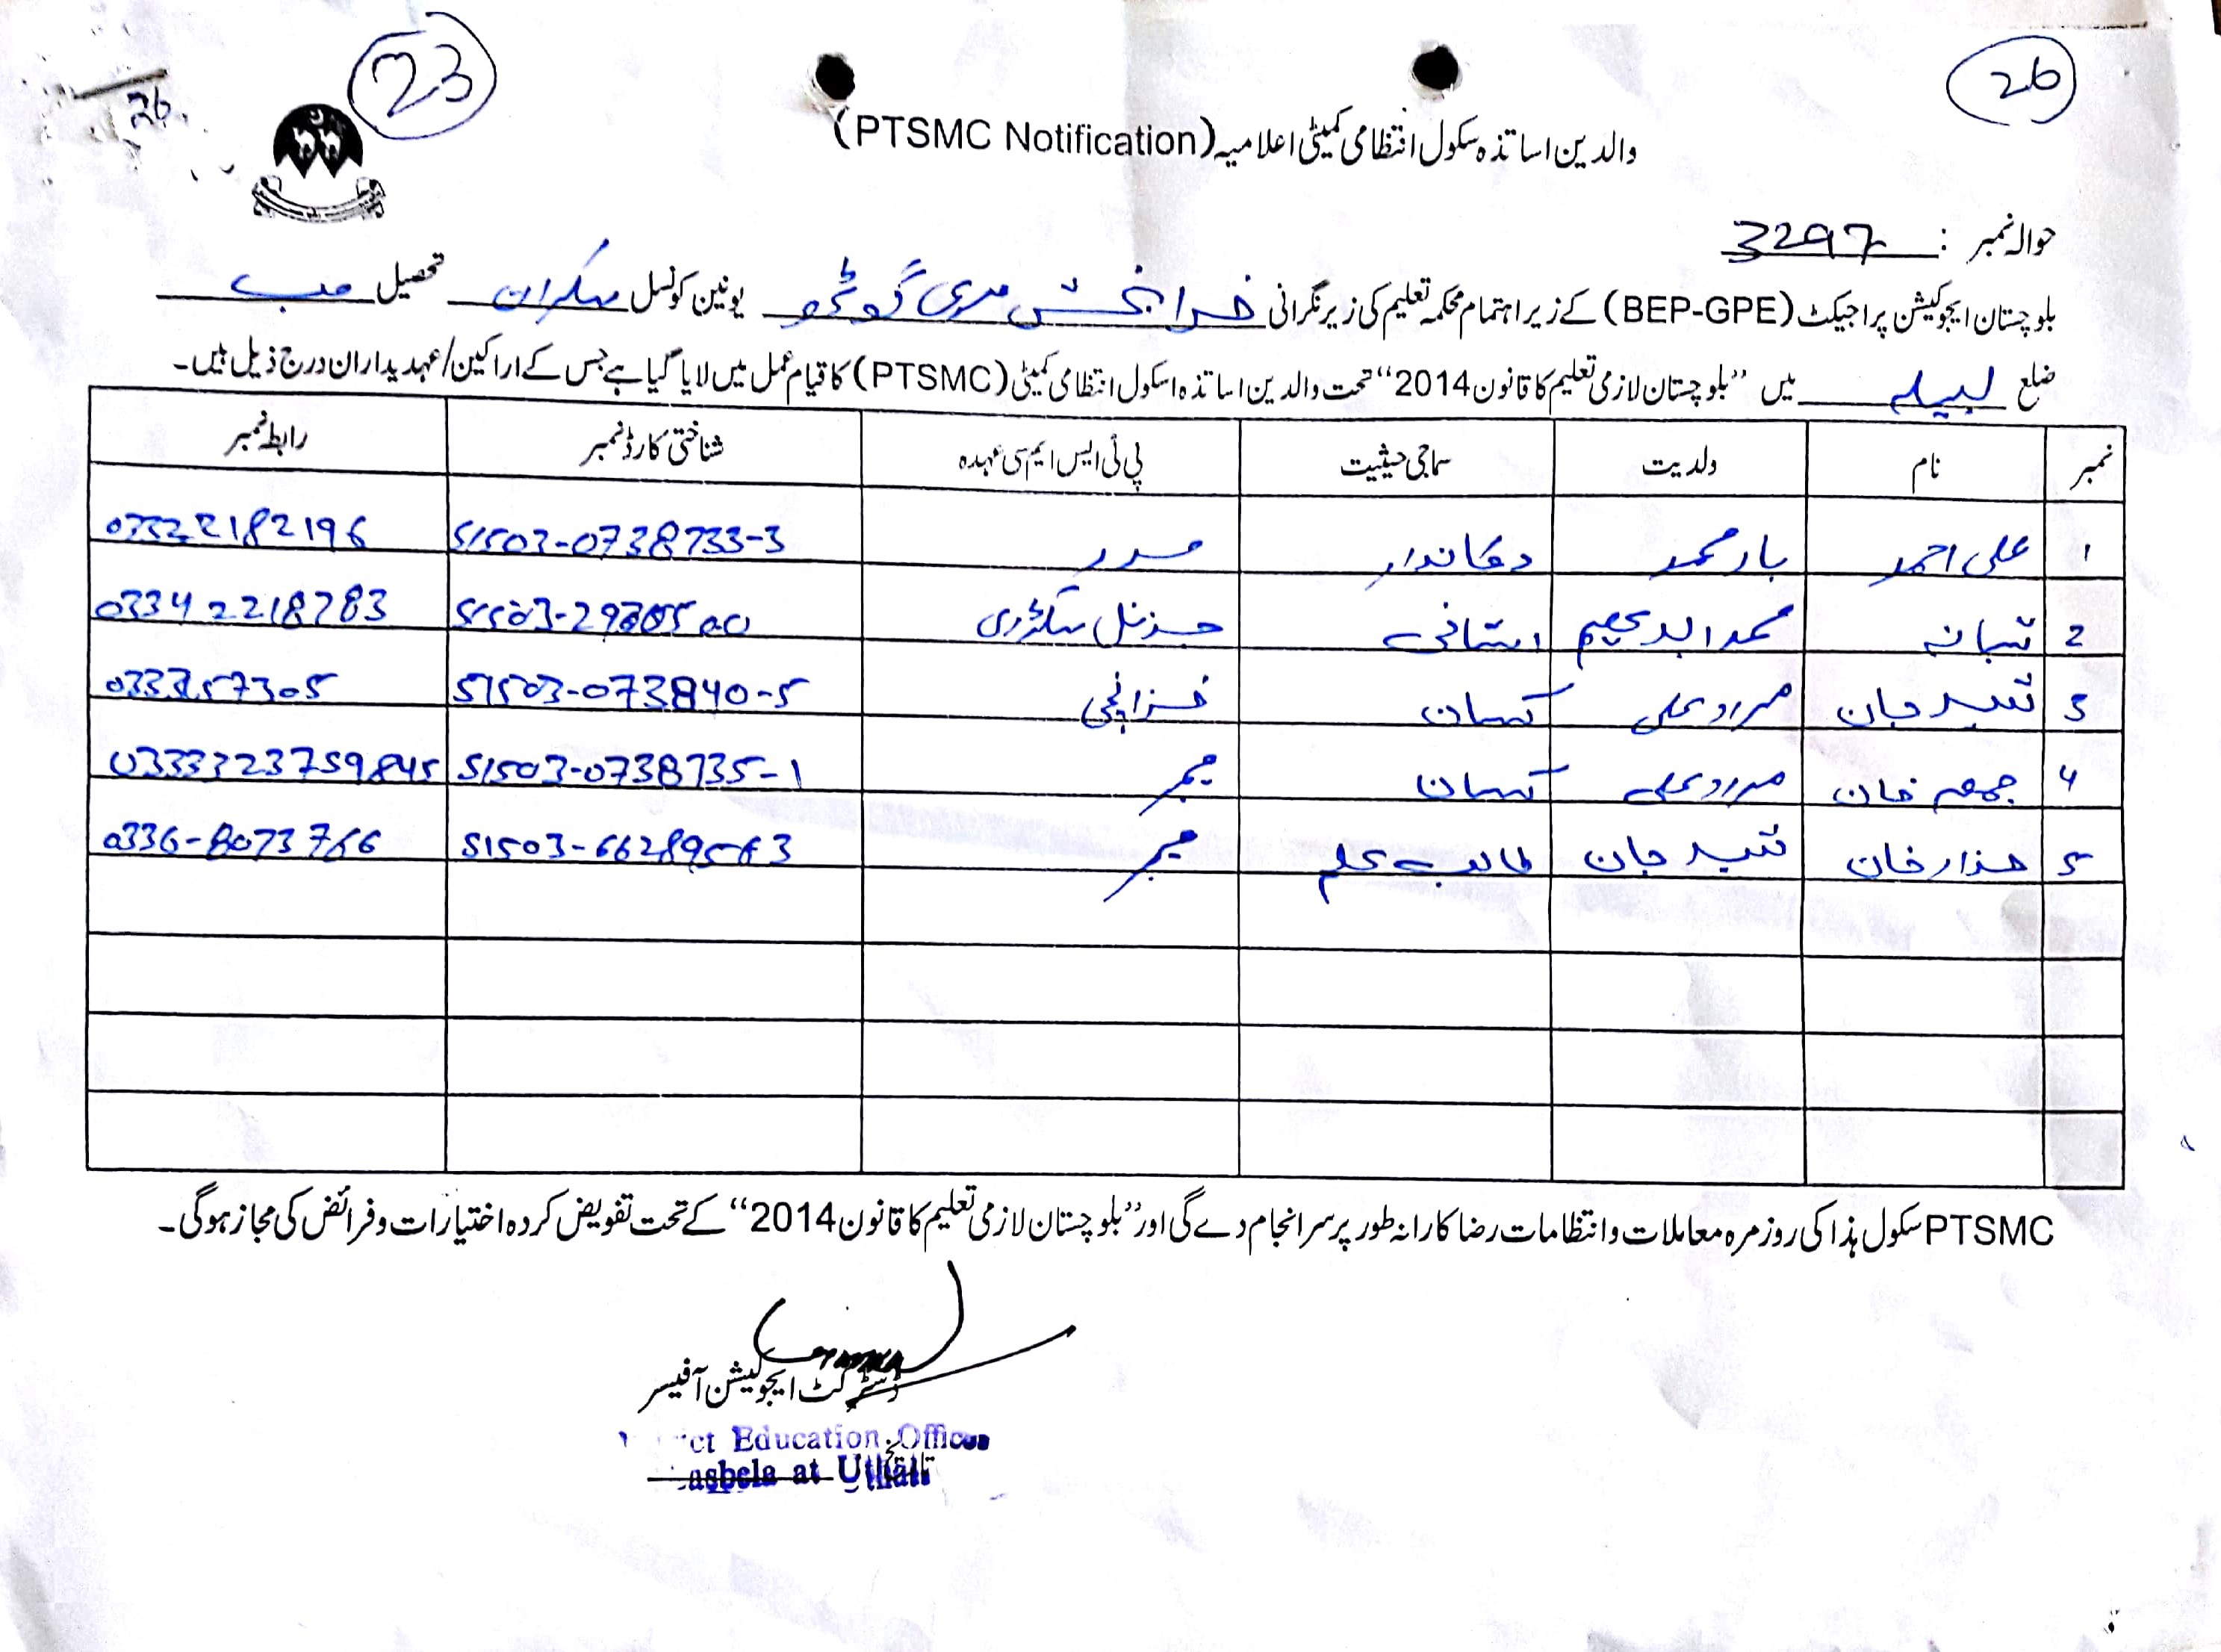 23
26
26
والدین اساتذہ سکول انتظامی کمیٹی اعلامیہ (PTSMC Notification)
حوالہ نمبر : 3297
بلوچستان ایجوکیشن پراجیکٹ (BEP-GPE) کے زیر اہتمام محکمہ تعلیم کی زیر نگرانی خدا بخش مری گوٹھ یونین کونسل ساکران تحصیل حب
ضلع لسبیلہ میں ”بلوچستان لازمی تعلیم کا قانون 2014“ تحت والدین اساتذہ اسکول انتظامی کمیٹی (PTSMC) کا قیام عمل میں لایا گیا ہے جس کے اراکین/عہدیداران درج ذیل ہیں۔
نمبر نام ولدیت سماجی حیثیت پی ٹی ایس ایم سی عہدہ شناختی کارڈ نمبر رابطہ نمبر
1 علی احمد یار محمد دکاندار صدر 51503-0738733-3 03322182196
2 شبانہ محمد استانی جنرل سیکرٹری 03342218783
3 جان مراد علی کسان خزانچی 51503-073840-5
4 جمعہ خان مراد علی کسان ممبر 51503-0738735-1 0333323759845
5 ھزار خان جان طالب علم ممبر 0336-8073766
PTSMC سکول ہذا کی روزمرہ معاملات و انتظامات رضا کارانہ طور پر سر انجام دے گی اور ”بلوچستان لازمی تعلیم کا قانون 2014“ کے تحت تفویض کردہ اختیارات و فرائض کی مجاز ہوگی۔
ڈسٹرکٹ ایجوکیشن آفیسر
ct Education Officer
asbela at Uthal
تاریخ